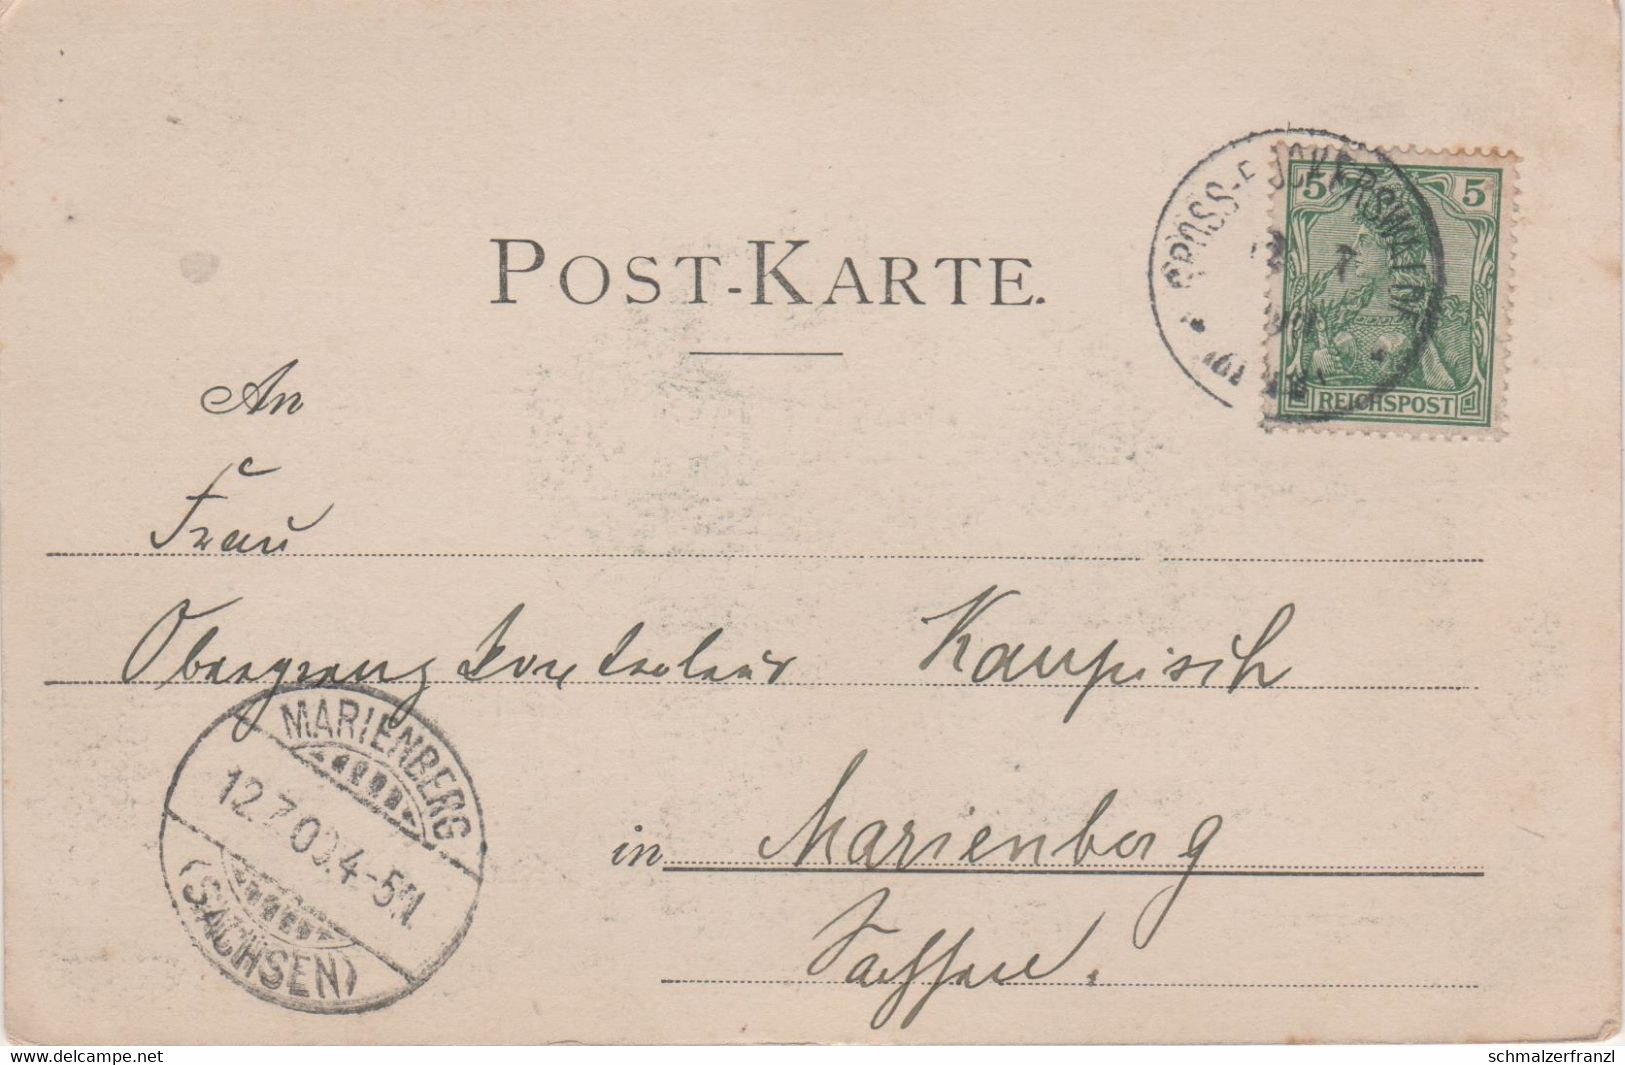 POST-KARTE.
5 5
REICHSPOST
12 7
An
Frau
Obergrenzkontroleur Kaupisch
MARIENBERG
12.7.00.4-5N.
(SACHSEN)
in Marienberg
Sachsen.
www.delcampe.net
schmalzerfranzl